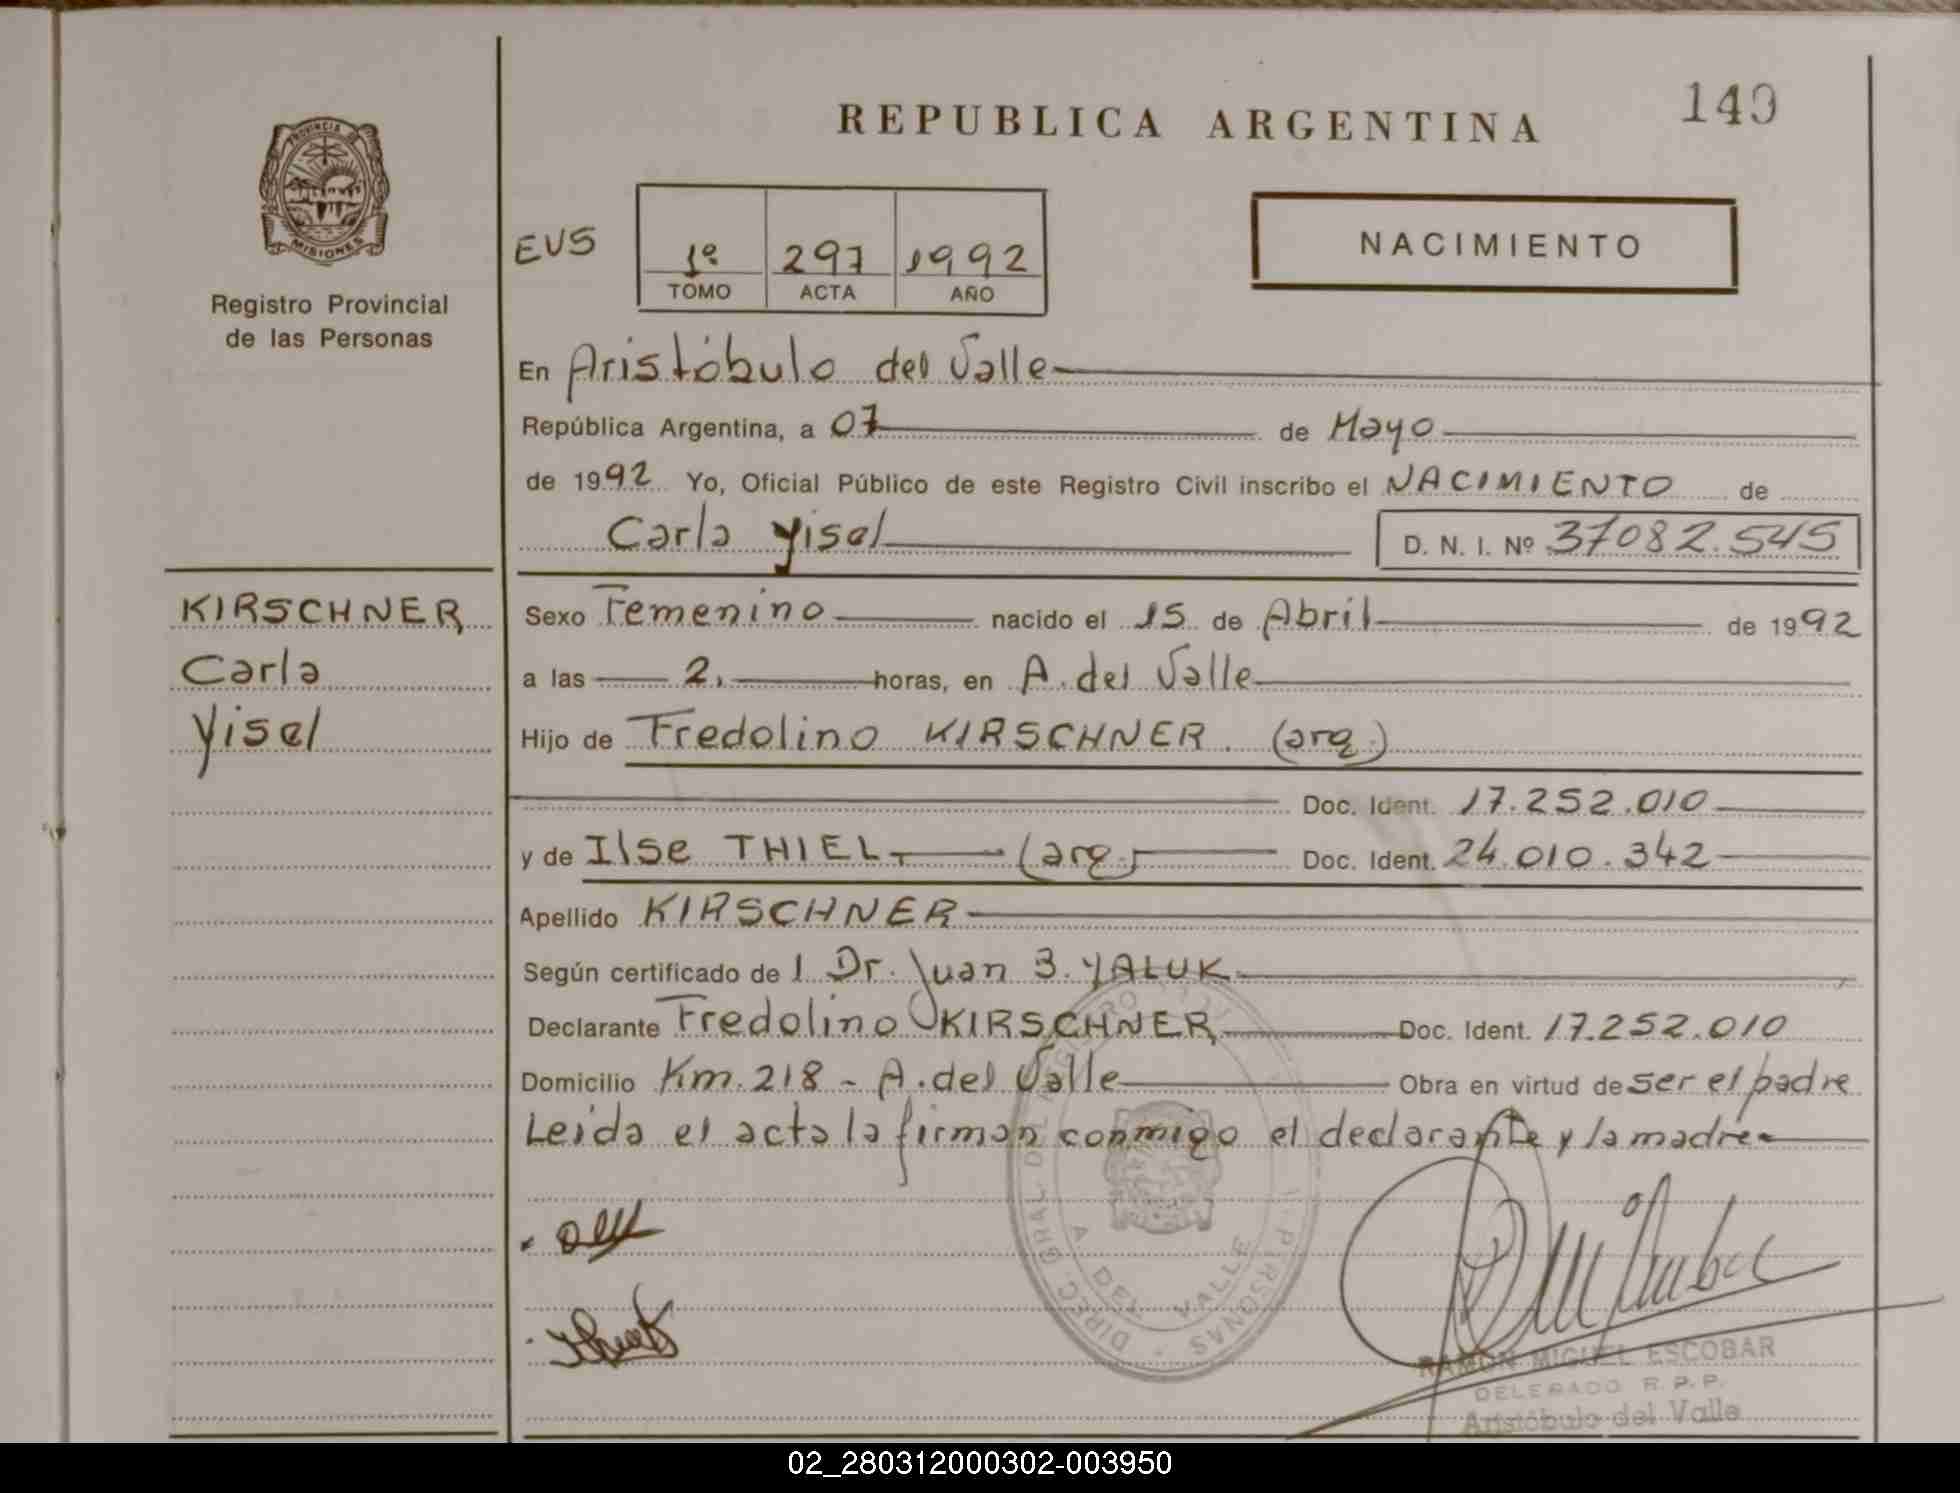 REPUBLICA ARGENTINA
149
PROVINCIA DE
MISIONES
Registro Provincial
de las Personas
EUS
1º 297 1992
TOMO ACTA AÑO
NACIMIENTO
En Aristóbulo del Valle
República Argentina, a 07 de Mayo
de 1992 Yo, Oficial Público de este Registro Civil inscribo el NACIMIENTO de
Carla Yisel D. N. I. Nº 37082.545
KIRSCHNER
Carla
Yisel
Sexo Femenino nacido el 15 de Abril de 1992
a las 2. horas, en A. del Valle
Hijo de Fredolino KIRSCHNER. (arg.)
Doc. Ident. 17.252.010
y de Ilse THIEL (arg.) Doc. Ident. 24.010.342
Apellido KIRSCHNER
Según certificado de l Dr. Juan B. YALUK
Declarante Fredolino KIRSCHNER Doc. Ident. 17.252.010
Domicilio Km. 218 - A. del Valle Obra en virtud de ser el padre
Leida el acta la firman conmigo el declarante y la madre
DIREC GRAL DEL REGISTRO PERSONAS
A DEL VALLE
RAMON MIGUEL ESCOBAR
DELEGADO R.P.P.
Aristóbulo del Valle
02_280312000302-003950